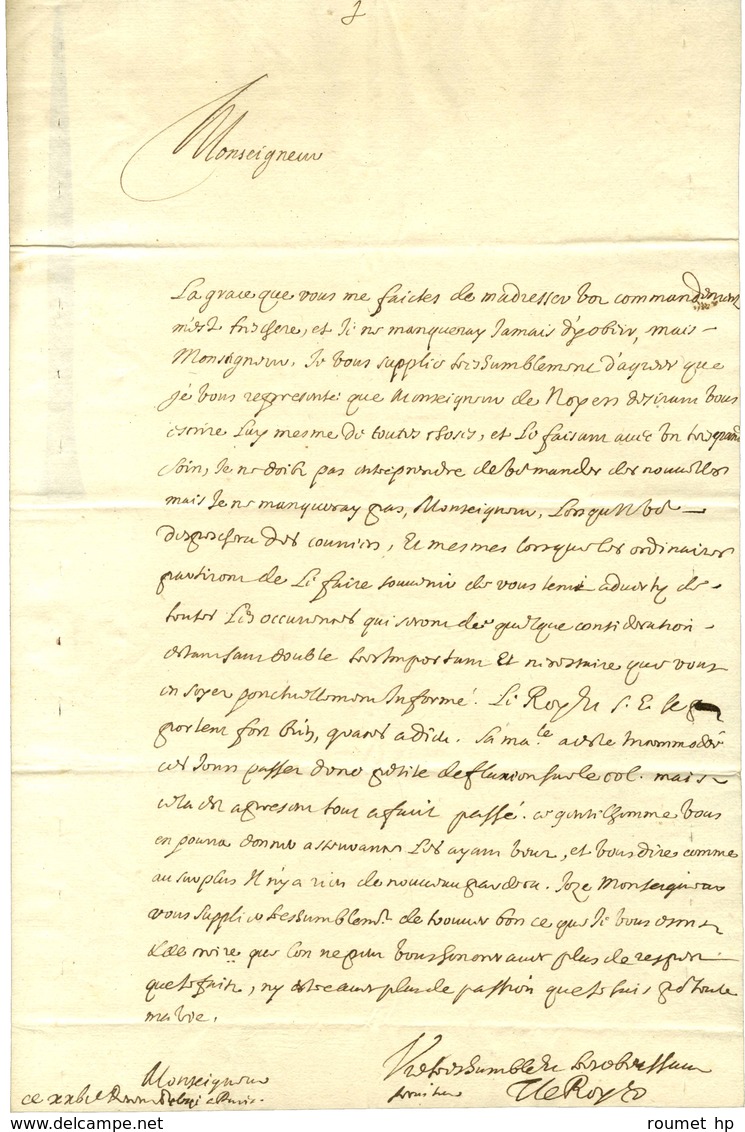 Monseigneur
La grace que vous me faictes de madresser voz commandemens
m'est tres chere, et Je ne manqueray Jamais d'y obeir, mais
Monseigneur, Je vous supplie treshumblement d'agreer que
je vous represente que Monseigneur de Noyers desirant vous
escrire Luy mesme de toutes choses, et Le faisant avec un tres grand
soin, Je ne doibs pas entreprendre de vo mander des nouvelles
mais Je ne manqueray pas, Monseigneur, Lorsqu'Il vo
despeschera des courriers, Et mesmes lorsque les ordinaires
partiront de Le faire souvenir de vous tenir adverty de
toutes Les occurrences qui seront de quelque consideration
estant sans double tres Important Et necessaire que vous
en soyez ponctuellement Informé. Le Roy Et S. E. se
portent fort bien, graces a dieu. Sa ma.te a esté Incommodée
ces Jours passez d'une petite defluxion sur le col. mais
cela est apresent tout a fait passé. ce gentilhomme vous
en pourra donner asseurance Les ayant veux, et vous dire comme
au surplus Il n'y a rien de nouveau pardeca. Monseigneur
vous supplie treshumblem.t de trouver bon ce que Je vous
de croire que l'on ne peut vous honorer avec plus de respect
que Je fais, ny estre avec plus de passion que Je suis toute
ma vie.
Monseigneur
Vre treshumble Et tresobeissant
serviteur
Le Roy
ce
roumet hp